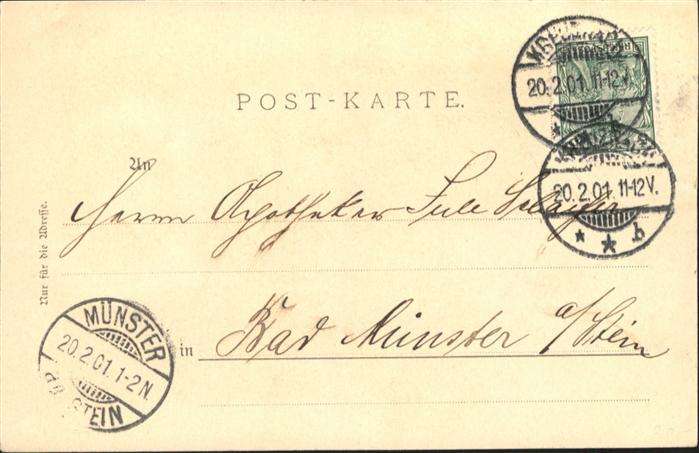 KREUZNACH
20.2.01. 11-12V.
POST-KARTE.
KREUZNACH
20.2.01. 11-12V.
* * b
An
Herrn Apotheker
Nur für die Adresse.
in Bad Münster a/Stein
MÜNSTER
20.2.01. 1-2N.
STEIN